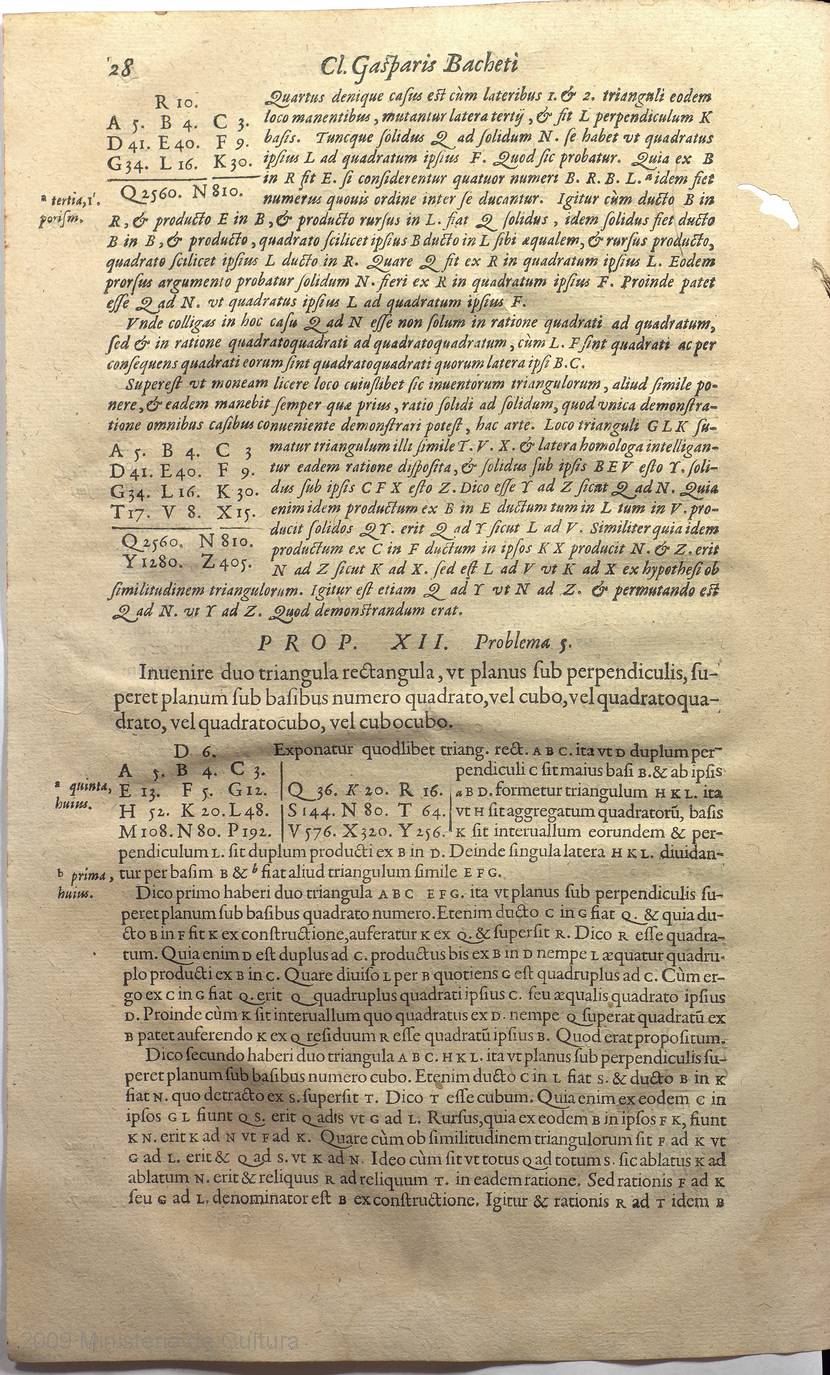 28 Cl. Gasparis Bacheti
R 10.
A 5. B 4. C 3.
D 41. E 40. F 9.
G 34. L 16. K 30.
Q 2560. N 810.
Quartus denique casus est cùm lateribus 1. & 2. trianguli eodem
loco manentibus, mutantur latera tertij, & fit L perpendiculum K
basis. Tuncque solidus Q ad solidum N. se habet vt quadratus
ipsius L ad quadratum ipsius F. Quod sic probatur. Quia ex B
in R fit E. si considerentur quatuor numeri B. R. B. L. ª idem fiet
numerus quouis ordine inter se ducantur. Igitur cùm ducto B in
ª tertia, 1'.
porism.
R, & producto E in B, & producto rursus in L. fiat Q solidus, idem solidus fiet ducto
B in B, & producto, quadrato scilicet ipsius B ducto in L sibi æqualem, & rursus producto,
quadrato scilicet ipsius L ducto in R. Quare Q fit ex R in quadratum ipsius L. Eodem
prorsus argumento probatur solidum N. fieri ex R in quadratum ipsius F. Proinde patet
esse Q ad N. vt quadratus ipsius L ad quadratum ipsius F.
Vnde colligas in hoc casu Q ad N esse non solum in ratione quadrati ad quadratum,
sed & in ratione quadratoquadrati ad quadratoquadratum, cùm L. F sint quadrati ac per
consequens quadrati eorum sint quadratoquadrati quorum latera ipsi B. C.
Superest vt moneam licere loco cuiuslibet sic inuentorum triangulorum, aliud simile po-
nere, & eadem manebit semper quæ prius, ratio solidi ad solidum, quod vnica demonstra-
tione omnibus casibus conueniente demonstrari potest, hac arte. Loco trianguli G L K su-
A 5. B 4. C 3
D 41. E 40. F 9.
G 34. L 16. K 30.
T 17. V 8. X 15.
Q 2560. N 810.
Y 1280. Z 405.
matur triangulum illi simile T. V. X. & latera homologa intelligan-
tur eadem ratione disposita, & solidus sub ipsis B E V esto Y. soli-
dus sub ipsis C F X esto Z. Dico esse Y ad Z sicut Q ad N. Quia
enim idem productum ex B in E ductum tum in L tum in V. pro-
ducit solidos Q Y. erit Q ad Y sicut L ad V. Similiter quia idem
productum ex C in F ductum in ipsos K X producit N. & Z. erit
N ad Z sicut K ad X. sed est L ad V vt K ad X ex hypothesi ob
similitudinem triangulorum. Igitur est etiam Q ad Y vt N ad Z. & permutando est
Q ad N. vt Y ad Z. Quod demonstrandum erat.
PROP. XII. Problema 5.
Inuenire duo triangula rectangula, vt planus sub perpendiculis, su-
peret planum sub basibus numero quadrato, vel cubo, vel quadratoqua-
drato, vel quadratocubo, vel cubocubo.
D 6.
A 5. B 4. C 3.
E 13. F 5. G 12.
H 52. K 20. L 48.
M 108. N 80. P 192.
Q 36. K 20. R 16.
S 144. N 80. T 64.
V 576. X 320. Y 256.
ª quinta,
huius.
Exponatur quodlibet triang. rect. A B C. ita vt D duplum per-
pendiculi C sit maius basi B. & ab ipsis
ª B D. formetur triangulum H K L. ita
vt H sit aggregatum quadratorū, basis
K sit interuallum eorundem & per-
pendiculum L. sit duplum producti ex B in D. Deinde singula latera H K L. diuidan-
tur per basim B & ᵇ fiat aliud triangulum simile E F G.
ᵇ prima,
huius.
Dico primo haberi duo triangula A B C E F G. ita vt planus sub perpendiculis su-
peret planum sub basibus quadrato numero. Etenim ducto C in G fiat Q. & quia du-
cto B in F fit K ex constructione, auferatur K ex Q. & supersit R. Dico R esse quadra-
tum. Quia enim D est duplus ad C. productus bis ex B in D nempe L æquatur quadru-
plo producti ex B in C. Quare diuiso L per B quotiens G est quadruplus ad C. Cùm er-
go ex C in G fiat Q. erit Q quadruplus quadrati ipsius C. seu æqualis quadrato ipsius
D. Proinde cùm K sit interuallum quo quadratus ex D. nempe Q superat quadratū ex
B patet auferendo K ex Q residuum R esse quadratū ipsius B. Quod erat propositum.
Dico secundo haberi duo triangula A B C. H K L. ita vt planus sub perpendiculis su-
peret planum sub basibus numero cubo. Etenim ducto C in L fiat S. & ducto B in K
fiat N. quo detracto ex S. supersit T. Dico T esse cubum. Quia enim ex eodem C in
ipsos G L fiunt Q S. erit Q ad S vt G ad L. Rursus, quia ex eodem B in ipsos F K, fiunt
K N. erit K ad N vt F ad K. Quare cùm ob similitudinem triangulorum sit F ad K vt
G ad L. erit & Q ad S. vt K ad N. Ideo cùm sit vt totus Q ad totum S. sic ablatus K ad
ablatum N. erit & reliquus R ad reliquum T. in eadem ratione. Sed rationis F ad K
seu G ad L. denominator est B ex constructione. Igitur & rationis R ad T idem B
2009 Ministerio de Cultura